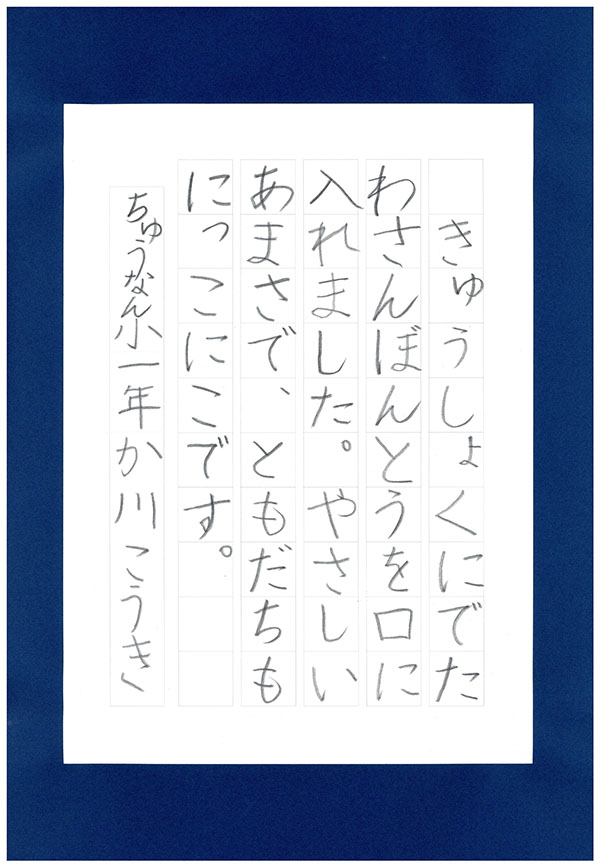 きゅうしょくにでた
わさんぼんとうを口に
入れました。やさしい
あまさで、ともだちも
にっこにこです。
ちゅうなん小一年か川こうき